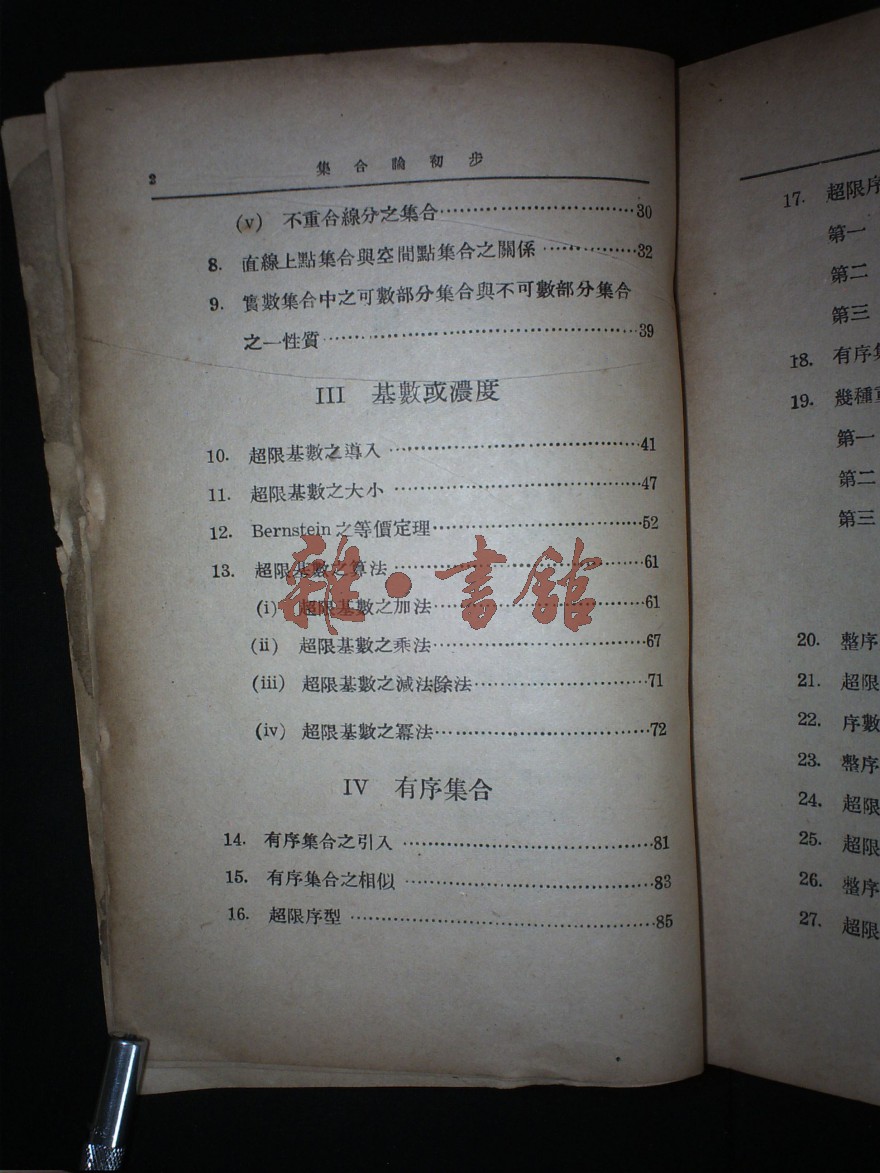 2 集合論初步
(v) 不重合線分之集合……30
8. 直線上點集合與空間點集合之關係……32
9. 實數集合中之可數部分集合與不可數部分集合
之一性質……39
III 基數或濃度
10. 超限基數之導入……41
11. 超限基數之大小……47
12. Bernstein之等價定理……52
13. 超限基數之算法……61
(i) 超限基數之加法……61
(ii) 超限基數之乘法……67
(iii) 超限基數之減法除法……71
(iv) 超限基數之冪法……72
IV 有序集合
14. 有序集合之引入……81
15. 有序集合之相似……83
16. 超限序型……85
雜·書館
17. 超限序
第一
第二
第三
18. 有序
19. 幾種
第一
第二
第三
20. 整序
21. 超限
22. 序數
23. 整序
24. 超限
25. 超限
26. 整序
27. 超限